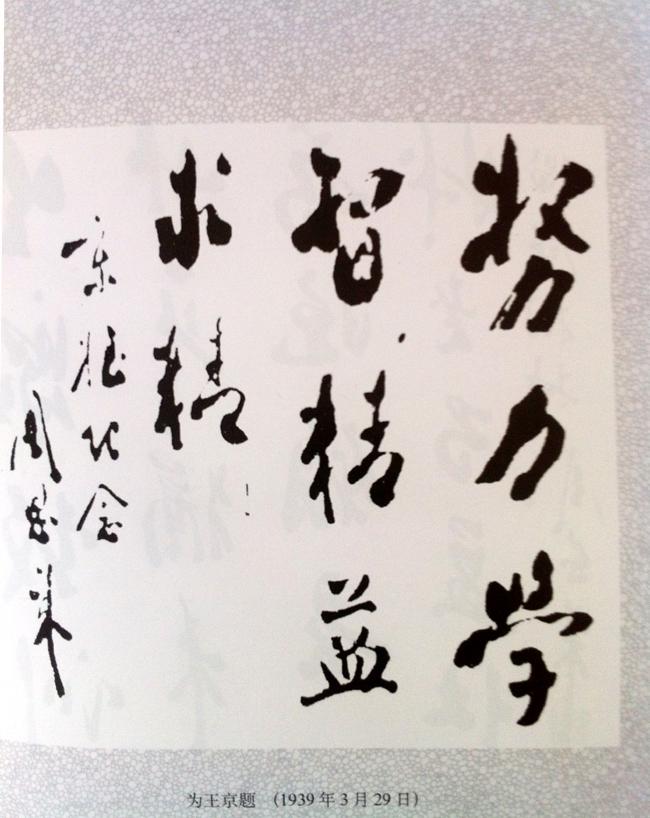 努力學
習，精益
求精！
京姪纪念
周恩来
为王京题 （1939年3月29日）